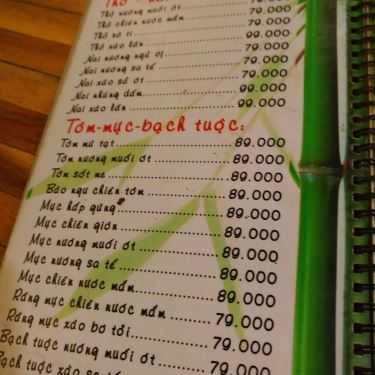 Thỏ nướng muối ớt 79.000
Thỏ chiên nước mắm 79.000
Thỏ rô ti 99.000
Thỏ xào lăn 79.000
Nai nướng ngũ vị 79.000
Nai nướng sa tế 79.000
Nai xào sả ớt 99.000
Nai nhúng dấm 99.000
Nai xào lăn
Tôm-mực-bạch tuộc:
Tôm mù tạt 89.000
Tôm nướng muối ớt 89.000
Tôm sốt me 89.000
Bào ngư chiên tôm 89.000
Mực hấp gừng 89.000
Mực chiên giòn 89.000
Mực nướng muối ớt 89.000
Mực nướng sa tế 89.000
Mực chiên nước mắm 89.000
Răng mực chiên nước mắm 79.000
Răng mực xào bơ tỏi 79.000
Bạch tuộc nướng muối ớt 79.000
Bạch tuộc xào sa tế